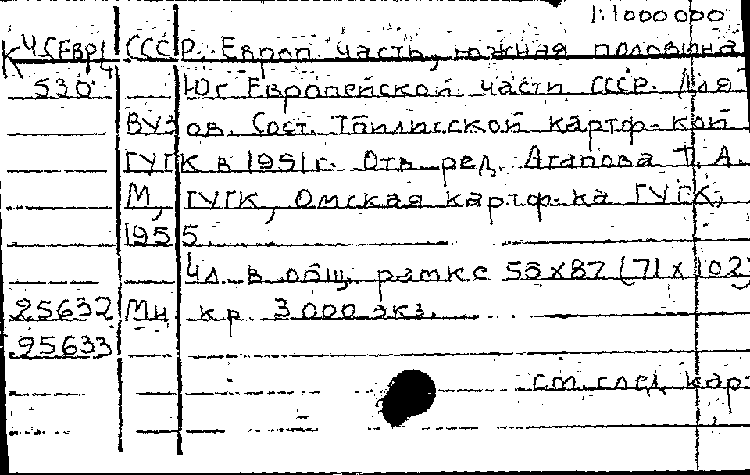 1:1000000
К 4(Евр) СССР. Европ. часть, южная половина
530 Юг Европейской части СССР. Для
вузов. Сост. Тбилисской картф-кой
ГУГК в 1951 г. Отв. ред. Агапова Т. А.
М, ГУГК, Омская картф-ка ГУГК,
1955.
4 л. в общ. рамке 55х87 (71х102)
25632 Мн кр. 3000 экз.
25633
см. след. кар